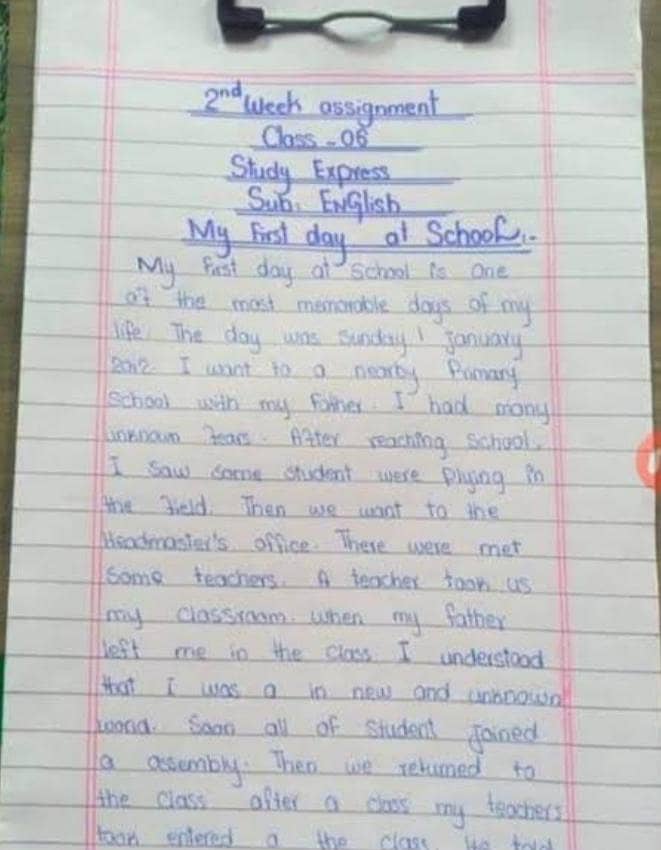 2nd Week assignment
Class - 06
Study Express
Sub: English
My First day at School:-
My First day at School is One
of the most memorable days of my
life. The day was Sunday 1 January
2012. I want to a nearby Primary
School with my Father. I had many
unknown Fears. After reaching School.
I Saw Some Student were Plying in
the Field. Then we want to the
Headmaster's office. There were met
Some teachers. A teacher took us
my classroom. When my father
left me in the Class I understood
that I was a in new and unknown
Soon all of Student Joined
a assembly. Then we returned to
the Class after a class my teachers
entered a the class. He told